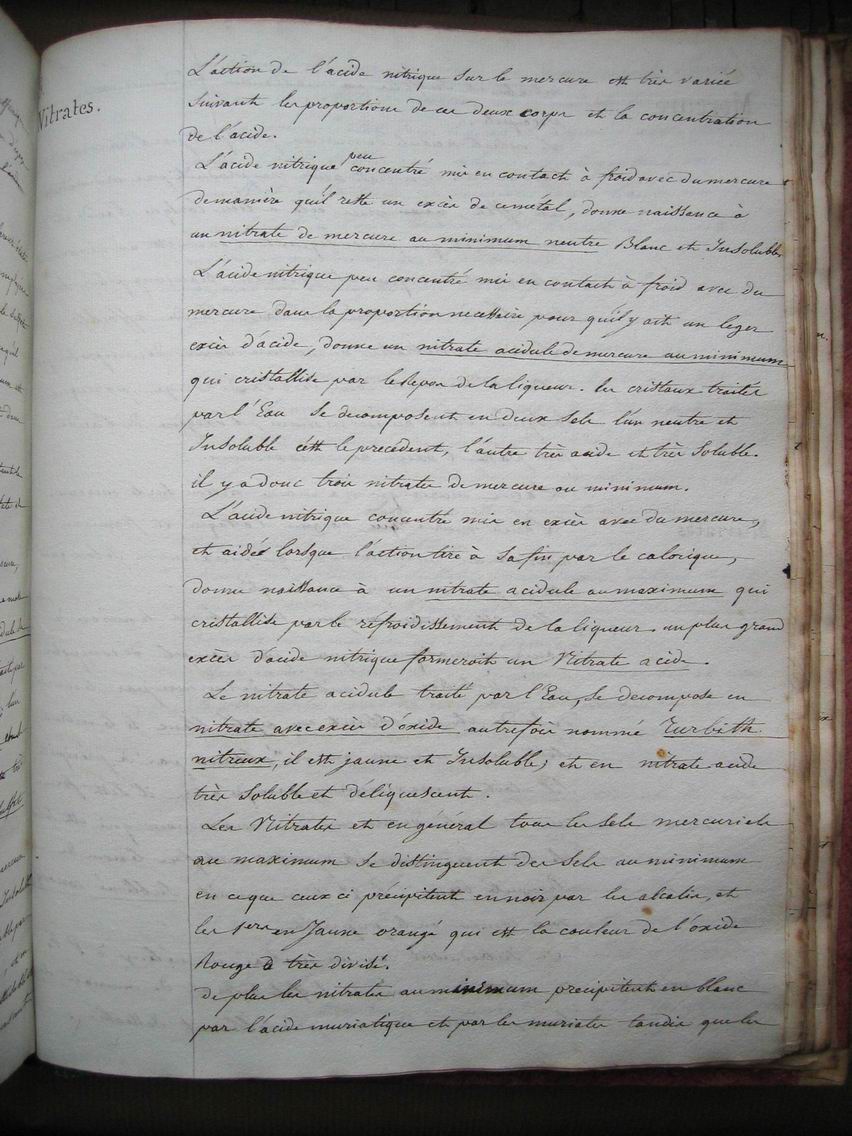 Nitrates.
L'action de l'acide nitrique sur le mercure est très variée
suivant les proportions de ces deux corps et la concentration
de l'acide.
L'acide nitrique peu concentré mis en contact à froid avec du mercure
de manière qu'il reste un excès de ce métal, donne naissance à
un nitrate de mercure au minimum neutre Blanc et Insoluble
L'acide nitrique peu concentré mis en contact à froid avec du
mercure dans la proportion necessaire pour qu'il y ait un leger
excès d'acide, donne un nitrate acidule de mercure au minimum
qui cristallise par le Repos de la liqueur. les cristaux traités
par l'Eau se decomposent en deux sels l'un neutre et
Insoluble c'est le precedent, l'autre très acide et très soluble.
il y a donc trois nitrates de mercure au minimum.
L'acide nitrique concentré mis en excès avec du mercure,
et aidée lorsque l'action tire à sa fin par le calorique,
donne naissance à un nitrate acidule au maximum qui
cristallise par le réfroidissement de la liqueur. un plus grand
excès d'acide nitrique formeroit un Nitrate acide.
Le nitrate acidule traité par l'Eau, se decompose en
nitrate avec excès d'oxide autrefois nommé Turbith
nitreux, il est jaune et Insoluble; et en nitrate acide
très soluble et déliquescent.
Les Nitrates et en général tous les sels mercuriels
au maximum se distinguent des sels au minimum
en ce que ceux ci précipitent en noir par les alcalis, et
les 1ers en Jaune orangé qui est la couleur de l'óxide
Rouge très divisé.
de plus les nitrates au minimum precipitent en blanc
par l'acide muriatique et par les muriates tandis que les